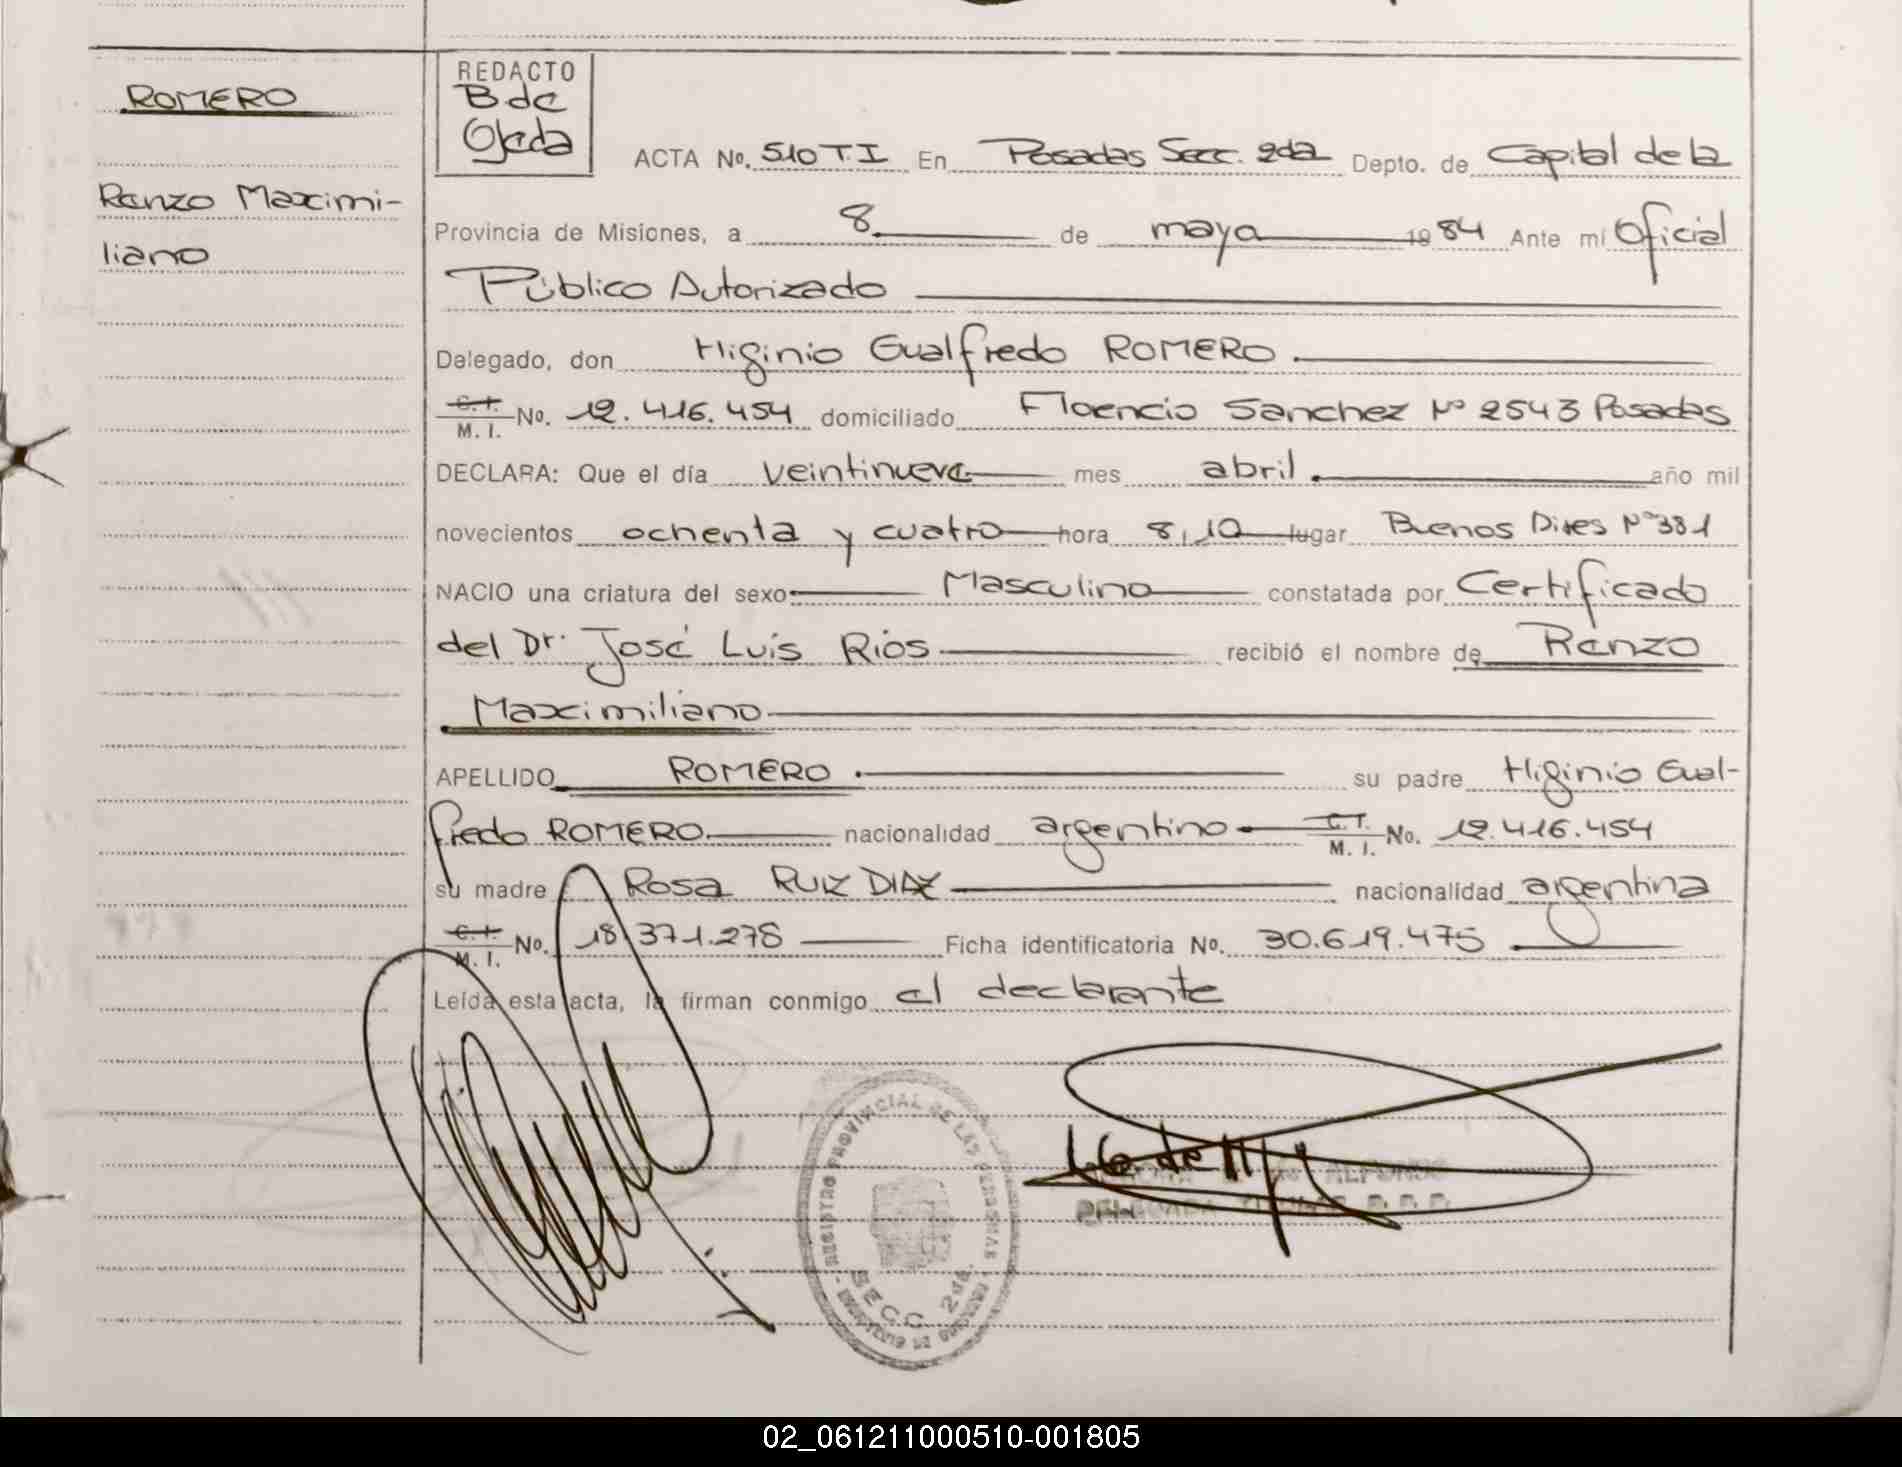 ROMERO
Renzo Maximi-
liano
REDACTO
B. de
Ojeda
ACTA No. 510 T. I En Posadas Secc. 2da Depto. de Capital de la
Provincia de Misiones, a 8 de mayo 1984 Ante mí Oficial
Público Autorizado
Delegado, don Higinio Gualfredo ROMERO
C. I. / M. I. No. 12.416.454 domiciliado Floencio Sanchez Nº 2543 Posadas
DECLARA: Que el día veintinueve mes abril año mil
novecientos ochenta y cuatro hora 8,10 lugar Buenos Aires Nº 381
NACIO una criatura del sexo Masculino constatada por Certificado
del Dr. José Luis Ríos recibió el nombre de Renzo
Maximiliano
APELLIDO ROMERO su padre Higinio Gual-
fredo ROMERO nacionalidad argentino C. I. / M. I. No. 12.416.454
su madre Rosa RUIZ DIAZ nacionalidad argentina
C. I. / M. I. No. 18.371.278 Ficha identificatoria No. 30.619.475
Leída esta acta, la firman conmigo el declarante
REGISTRO PROVINCIAL DE LAS PERSONAS
SECC. 2da.
ALFONSO
02_061211000510-001805